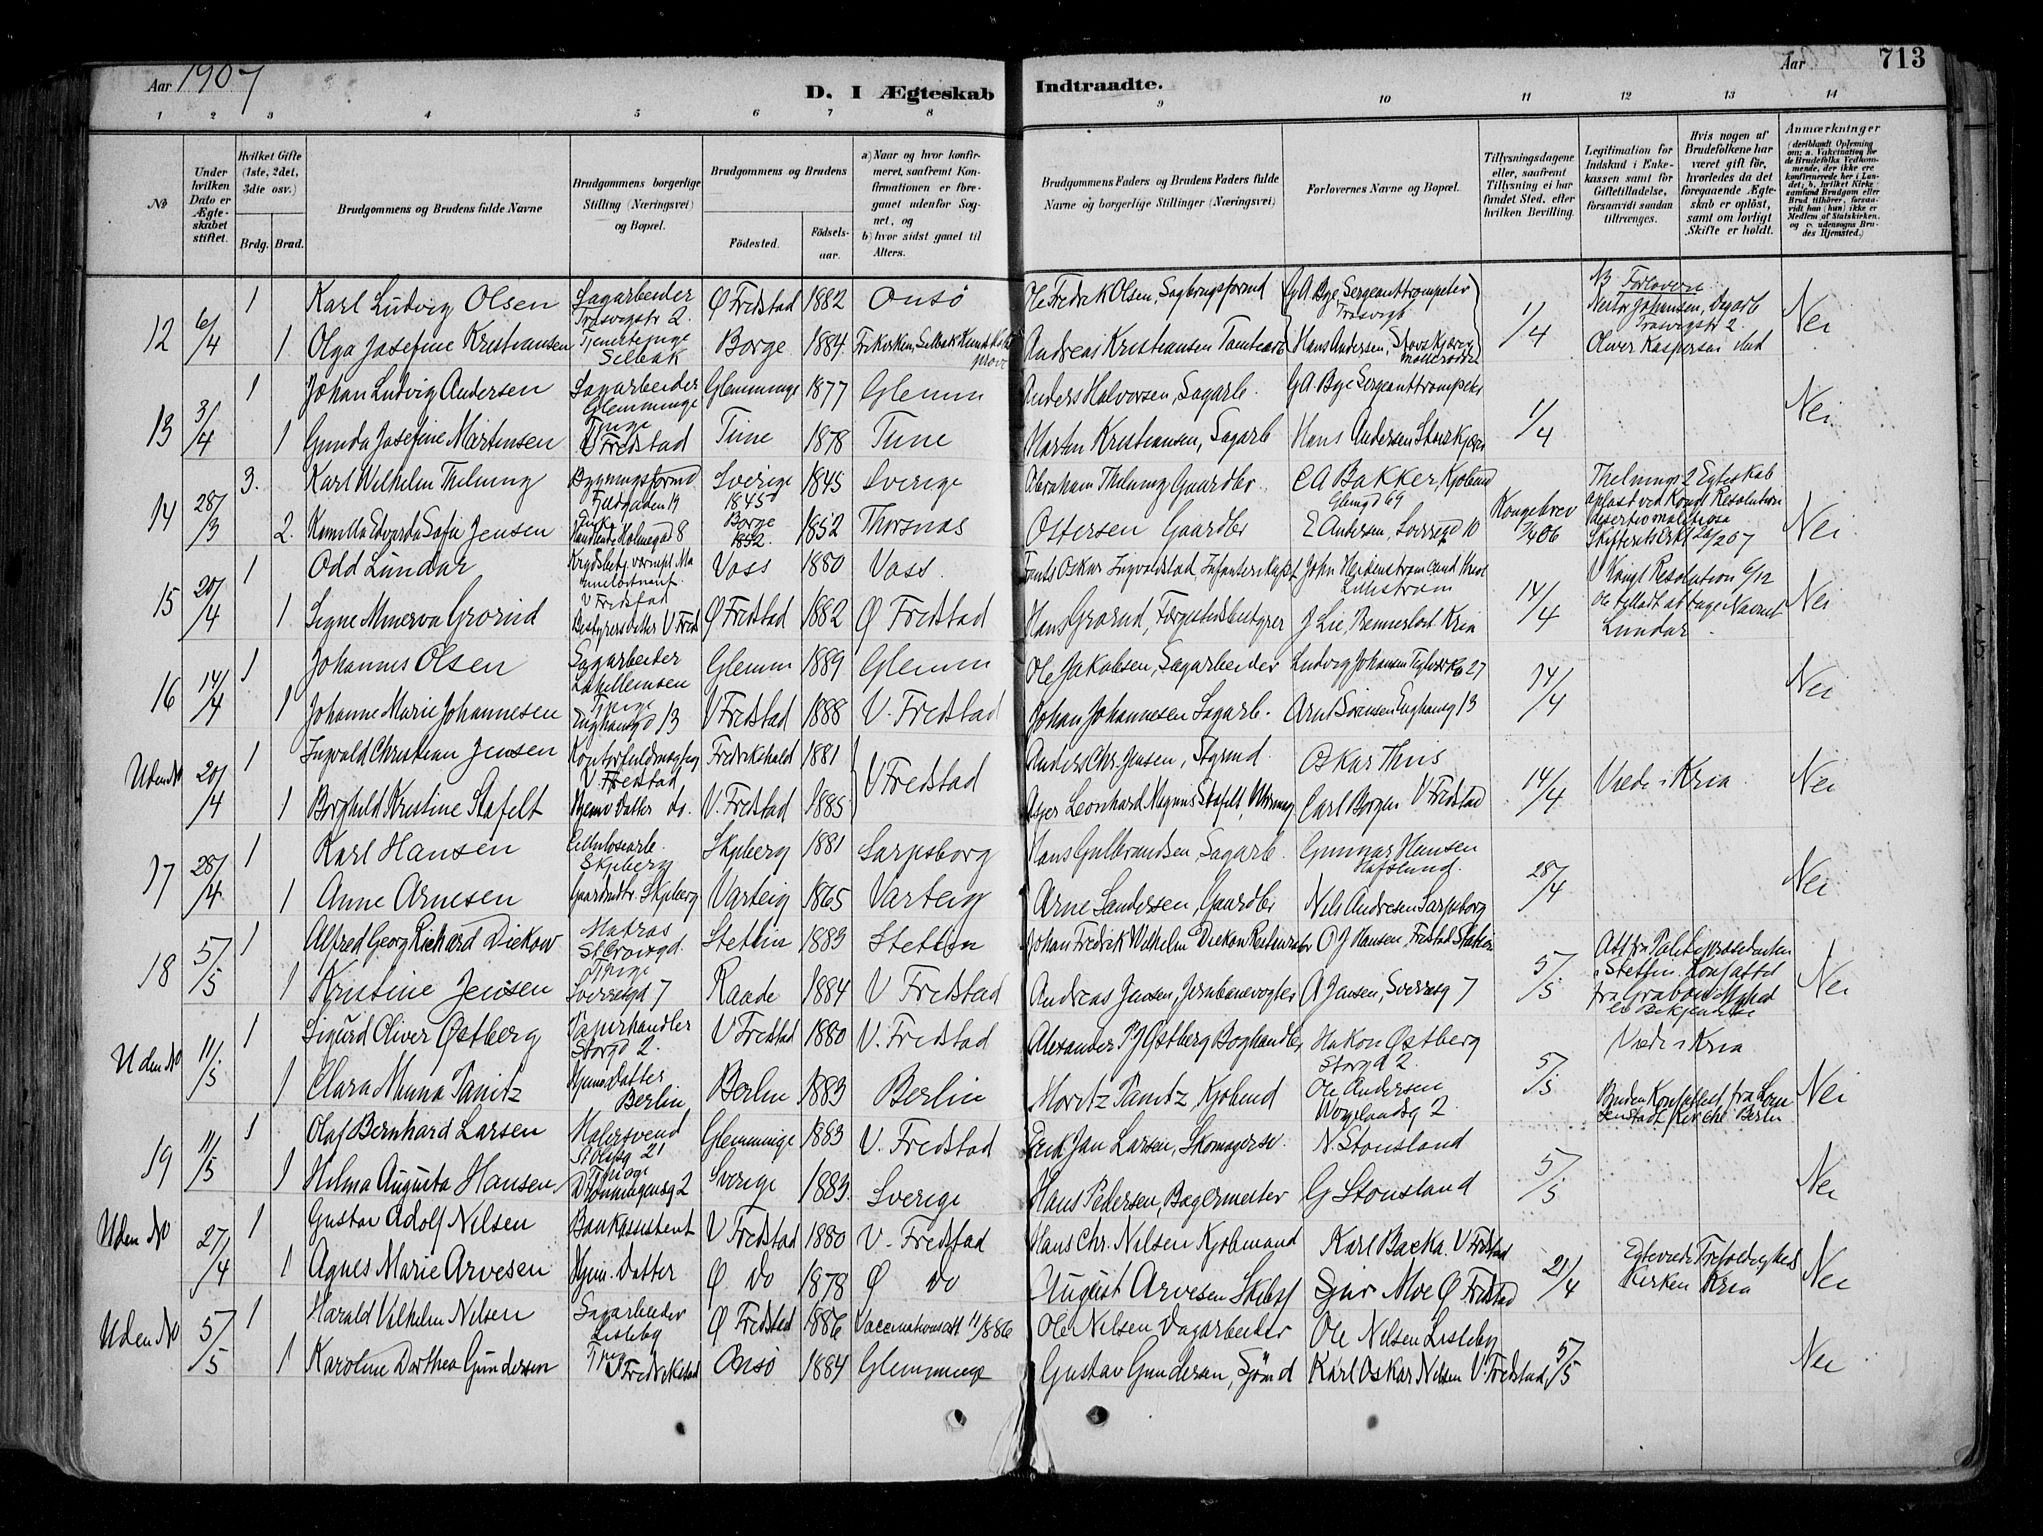 Aar 1907
D. I Ægteskab Indtraadte.
Aar 713
1 2 3 4 5 6 7 8 9 10 11 12 13 14
No
Under hvilken Dato er Ægteskabet stiftet.
Hvilket Gifte (1ste, 2det, 3die osv.)
Brdg. Brud.
Brudgommens og Brudens fulde Navne
Brudgommens borgerlige Stilling (Næringsvei) og Bopæl.
Brudgommens og Brudens
Födested. Födsels-aar.
a) Naar og hvor konfirmeret, saafremt Konfirmationen er foregaaet udenfor Sognet, og
b) hvor sidst gaaet til Alters.
Brudgommens Faders og Brudens Faders fulde Navne og borgerlige Stillinger (Næringsvei)
Forlovernes Navne og Bopæl.
Tillysningsdagene eller, saafremt Tillysning ei har fundet Sted, efter hvilken Bevilling.
Legitimation for Indskud i Enkekassen samt for Giftetilladelse, forsaavidt saadan tiltrænges.
Hvis nogen af Brudefolkene har været gift før, hvorledes da det foregaaende Ægteskab er oplöst, samt om lovligt Skifte er holdt.
Anmærkninger (deriblandt Oplysning om: a. Vakcination for de Brudefolks Vedkommende, der ikke ere konfirmerede her i Landet; b. hvilket Kirkesamfund Brudgom eller Brud tilhörer, forsaavidt han (hun) ikke er Medlem af Statskirken, og c. udensogns Brudes Hjemsted.)
12 6/4 1 Karl Ludvig Olsen Sagarbeider Trosvigstr 2. Ø Fredstad 1882 Onsö Ole Fredrik Olsen, Sagbrugsformd G A Bye Sergeanttrompeter Trosvigb 1/4 NB Forlovere Nestor Johansen, Dagarb Trosvigstr 2. Nei
1 Olga Josefine Kristiansen Tjenestepige Selbak Borge 1884 Frikirken, Selbak Andreas Kristiansen Tomtearb Hans Andersen, Oliver Kaspersen
13 3/4 1 Johan Ludvig Andersen Sagarbeider Glemminge Glemminge 1877 Glemm Anders Halvorsen, Sagarb. G A Bye Sergeanttrompeter 1/4 Nei
1 Gunda Josefine Martinsen Pige Ø Fredstad Tune 1878 Tune Martin Kristiansen, Sagarb Hans Andersen Storekjær
14 28/3 3. Karl Wilhelm Thelning Bygningsformd Færgaden 19 Sverige 1845 1845 Sverige Abraham Thelning Gaardbr. C A Bakker, Kjøbmd Glemgd 69 Kongebrev 7/4 06 Thelnings 2 Egteskab opløst ved Kongl Resolution Nei
2. Kamilla Edvarda Sofie Jensen Enke Holmegd 8 Borge 1852. 1852 Thorsnæs Ottersen Gaardbr E Andersen, Sverresgd 10 Skifteretserkl 20/2 07
15 20/4 1 Odd Lundar V Fredstad Voss 1880 Voss. John Heidenstrøm cand theol Lillestrøm 14/4 Kongl Resolution 6/12 tilladt at tage Navnet Lundar. Nei
1 Signe Minerva Grorud Bestyrers Datter V Freds Ø Fredstad 1882 Ø Fredstad Hans Grorud, J Lie, Kria
16 14/4 1 Johannes Olsen Sagarbeider Glemm 1889 Glemm Ole Jakobsen, Sagarbeider Ludvig Johansen 27 14/4 Nei
1 Johanne Marie Johannesen Pige Enghausgd 13 V Fredstad 1888 V. Fredstad Johan Johannesen Sagarb. Arnt Sörensen Enghausg 13
Uden No 20/4 1 Ingvald Christian Jensen Kontorfuldmægtig V Fredstad Fredrikshald 1881 V Fredstad Anders Chr. Jensen, Styrmd. Oskar Thiis 14/4 Viede i Kria. Nei
1 Borghild Kristine Stafelt Hjemv Datter do. V. Fredstad 1885 Leonhard Magnus Stafelt, Carl Borgen V Fredstad
17 28/4 1 Karl Hansen Cellulosearb. Skjeberg Skjeberg 1881 Sarpsborg Hans Gulbrandsen, Sagarb. Gunnar Hansen Hafslund. 28/4 Nei
1 Anne Arnesen Gaardmdtr. Skjeberg Varteig 1865 Varteig Arne Sandersen, Gaardbr Nils Andresen Sarpsborg
18 5/5 1 Alfred Georg Richard Diekow Matros Stettin 1883 Stettin Johan Fredrik Wilhelm Diekow Restauratør O J Hansen, Frstad Station 5/5 Att fra Politipræsidenten i Stettin. Konfattest Nei
1 Kristine Jensen Pige Sverresgd 7 Raade 1884 V Fredstad Andreas Jensen, Jernbanevogter A Jensen, Sverresg 7
Uden No 11/5 1 Sigurd Oliver Østberg Papirhandler Storgd 2. V Fredstad 1880 V. Fredstad Alexander P J Østberg Boghandler Hakon Østberg Storgd 2. 5/5 Viede i Kria Nei
1 Clara Minna Panitz Hjemv Datter. Berlin Berlin 1883 Berlin Moritz Panitz, Kjøbmd Ole Andersen Wogtlandsg 2. Bruden Konfattest fra Kirche Berlin
19 11/5 1 Olaf Bernhard Larsen Malersvend Stolsg 21 Glemminge 1883 V. Fredstad Fredr. Jan Larsen, Skomagersv. N. Stousland 5/5 Nei
1 Hilma Augusta Hansen Pige Dronningensg 2 Sverige 1883. Sverige Hans Pedersen, Bagermester G Stousland
Uden No 27/4 1 Gustav Adolf Nilsen Bankassistent V Fredstad 1880 V. Fredstad Hans Chr. Nilsen Kjøbmand Karl Backa. V Frstad 21/4 Egteviede Trefoldigheds Kirken Kria Nei
1 Agnes Marie Arvesen Hjem. Datter Ø Do 1878 Ø Do August Arvesen Skibsf Moe Ø Fredstad
Uden No 5/5 1 Harald Vilhelm Nilsen Sagarbeider Lisleby Ø Fredstad 1886 Vaccinationsatt 11/8 86 Ole Nilsen Dagarbeider Ole Nilsen Lisleby 5/5 Nei
1 Karoline Dorthea Gundersen Pige Fredrikstad Onsö 1884 Glemminge Gustav Gundersen, Sjömd Karl Oskar Nilsen V. Fredstad,